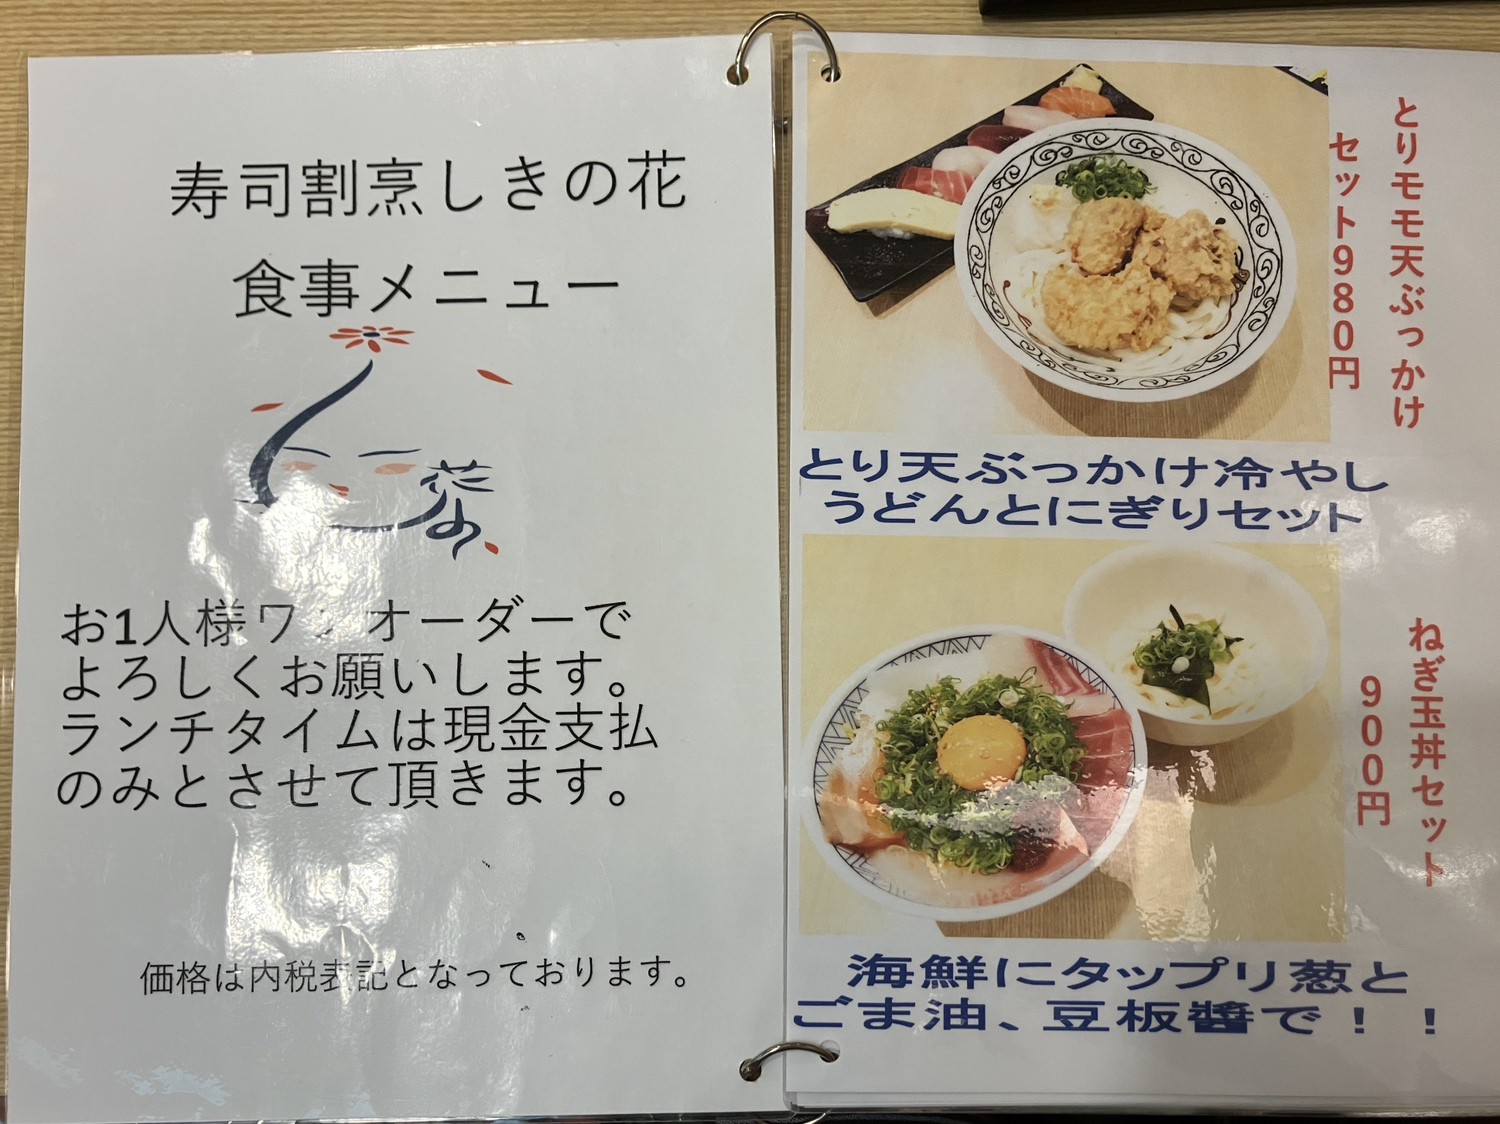 寿司割烹しきの花
食事メニュー
花の
お1人様ワンオーダーで
よろしくお願いします。
ランチタイムは現金支払
のみとさせて頂きます。
価格は内税表記となっております。
とりモモ天ぶっかけ
セット980円
とり天ぶっかけ冷やし
うどんとにぎりセット
ねぎ玉丼セット
900円
海鮮にタップリ葱と
ごま油、豆板醬で！！